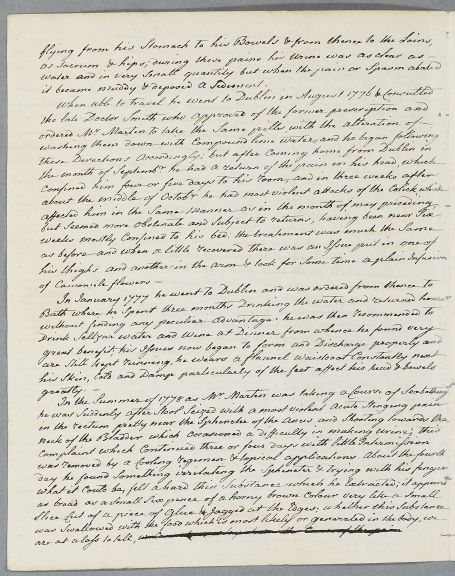 flying from his Stomach to his Bowels & from thence to the Loins,
os Sacrum & hips; during these pains his Urine was as clear as
water and in very Small quantity but when the pain or Spasm abated
it became muddy & deposed a Sediment.
When able to travel he went to Dublin in August 1776 & Consulted
the late Doctor Smith who approved of the former prescription and
ordered Mr. Martin to take the Same pills with the alteration of
washing them down with Compound lime Water, and he began following
these Directions accordingly; but after coming home from Dublin in
the month of Septembr. he had a return of the pain in his head which
Confined him four or five days to his room, and in three weeks after
about the middle of Octobr. he had most violent attacks of the Colick which
affected him in the Same manner as in the month of may preceding,
but Seemed more obstinate and Subject to returns, having been near Six
weeks mostly Confined to his bed. the treatement was much the Same
as before and when a little recovered there was an Issue put in one of
his thighs and another in the arm & took for Some time a plain Infusion
of Camomile flowers
In January 1777 he went to Dublin and was ordered from thence to
Bath where he Spent three months Drinking the water and returned home
without finding any peculiar Advantage. he was then recommended to
Drink Seltzar water and Wine at Dinner from whence he found very
great benefit. his Issues now began to form and Discharge properly and
are Still kept running, he wears a flannel waistcoat Constantly next
his Skin, Cold and Damp particularly of the feet affect his head & bowels
greatly.
In the Summer of 1778 as Mr. Martin was taking a Course of
he was Suddenly after Stool Seized with a most violent Acute Stinging pain
in the rectum pretty near the Sphincter of the Anus and Shooting towards the
Neck of the Bladder which occasioned a difficulty in making Urine; this
Complaint which Continued three or four days with little Intermission
was removed by a Cooling regimen & topical applications. About the fourth
day he found Something the Sphincter & trying with his finger
what it Could be, felt a hard thin Substance which he Extracted; it appears
as broad as a Small Six pence of a horny brown Colour very like a Small
Slice Cut of a piece of Glue & Jagged at the Edges; whether this Substance
was Swallowed with the food which is most likely or generated in the body, we
are at a loss to tell,